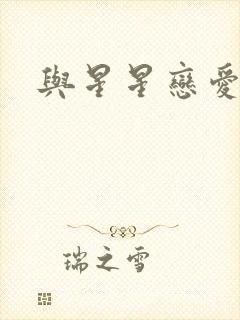 與星星戀愛
瑞之雪